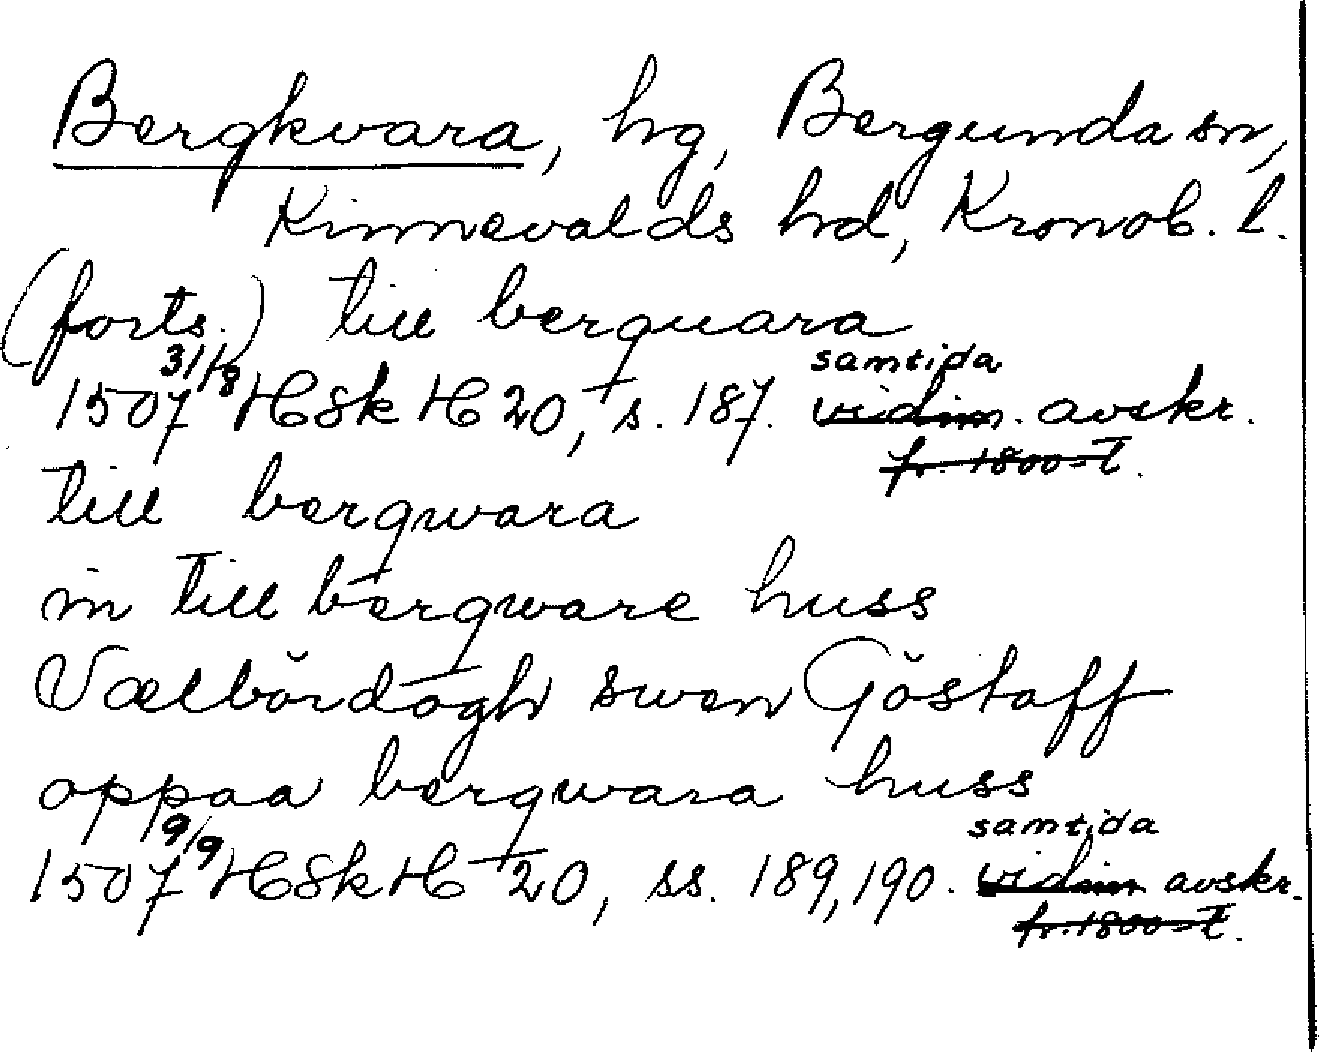 Bergkvara, hg, Bergunda sn,
Kinnevalds hd, Kronob. l.
(forts.) till berquara
1507 31/8 HSk H 20, s. 187. samtida vidim. avskr.
fr. 1800-t.
till bergwara
in till bergware huss
Vælbördogh swen Göstaff
oppaa bergwara huss
1507 9/9 HSk H 20, ss. 189, 190. samtida vidim avskr.
fr. 1800-t.